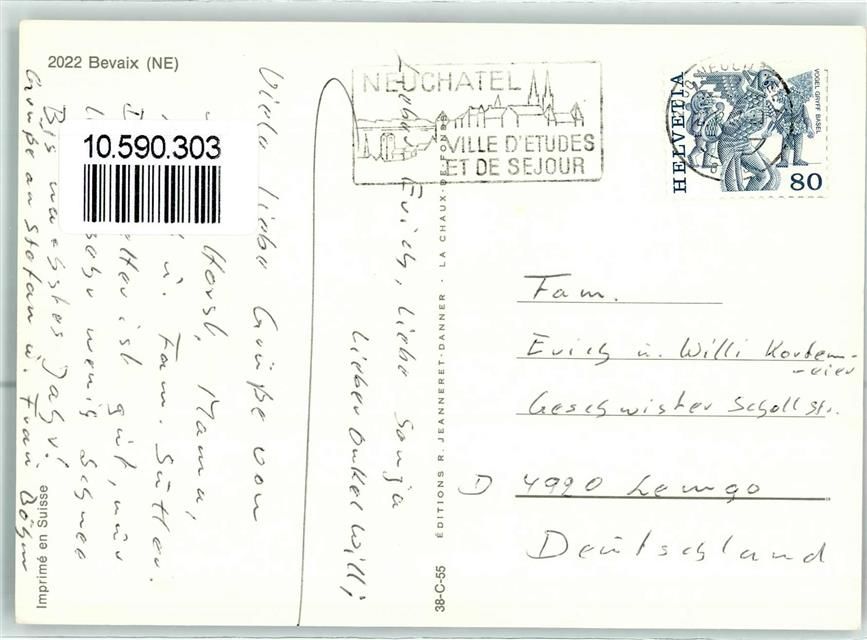 2022 Bevaix (NE)
10.590.303
NEUCHATEL
VILLE D'ETUDES
ET DE SEJOUR
HELVETIA
VOGEL GRYFF BASEL
80
NEUCH
Lieber Erich, liebe Sonja
Lieber Onkel Willi,
Viele liebe Grüße von
Horst, Mama,
u. Fam. Sütter.
ist gut, nur
sehr wenig Schnee
Bis nächstes Jahr!
Grüße an Stefan u. Frau Böhm
Imprimé en Suisse
38-C-55
ÉDITIONS R. JEANNERET-DANNER · LA CHAUX-DE-FONDS
Fam.
Erich u. Willi Kordem-
-eier
Geschwister Scholl Str.
D 4920 Lemgo
Deutschland